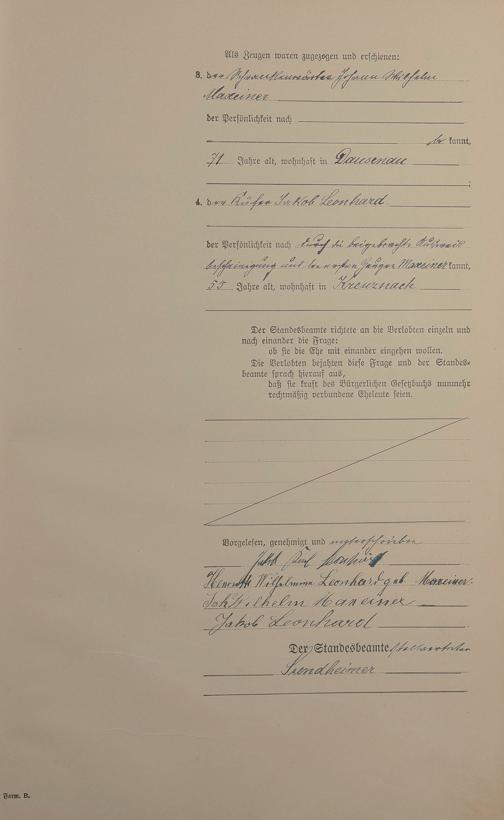 Als Zeugen waren zugezogen und erschienen:
3. der Schrankenwärter Johann Wilhelm
Maxeiner
der Persönlichkeit nach
be kannt,
71 Jahre alt, wohnhaft in Dausenau
;
4. der Küfer Jakob Leonhard
der Persönlichkeit nach durch die beigebrachte Ausweis
bescheinigung und den ersten Zeugen Maxeiner kannt,
55 Jahre alt, wohnhaft in Kreuznach
Der Standesbeamte richtete an die Verlobten einzeln und
nach einander die Frage:
ob sie die Ehe mit einander eingehen wollen.
Die Verlobten bejahten diese Frage und der Standes-
beamte sprach hierauf aus,
daß sie kraft des Bürgerlichen Gesetzbuchs nunmehr
rechtmäßig verbundene Eheleute seien.
Vorgelesen, genehmigt und unterschrieben
Jakob Leonhard
Wilhelmine Leonhard geb Maxeiner.
Joh Wilhelm Maxeiner
Jakob Leonhard
Der Standesbeamte
Sundheimer
Form. B.